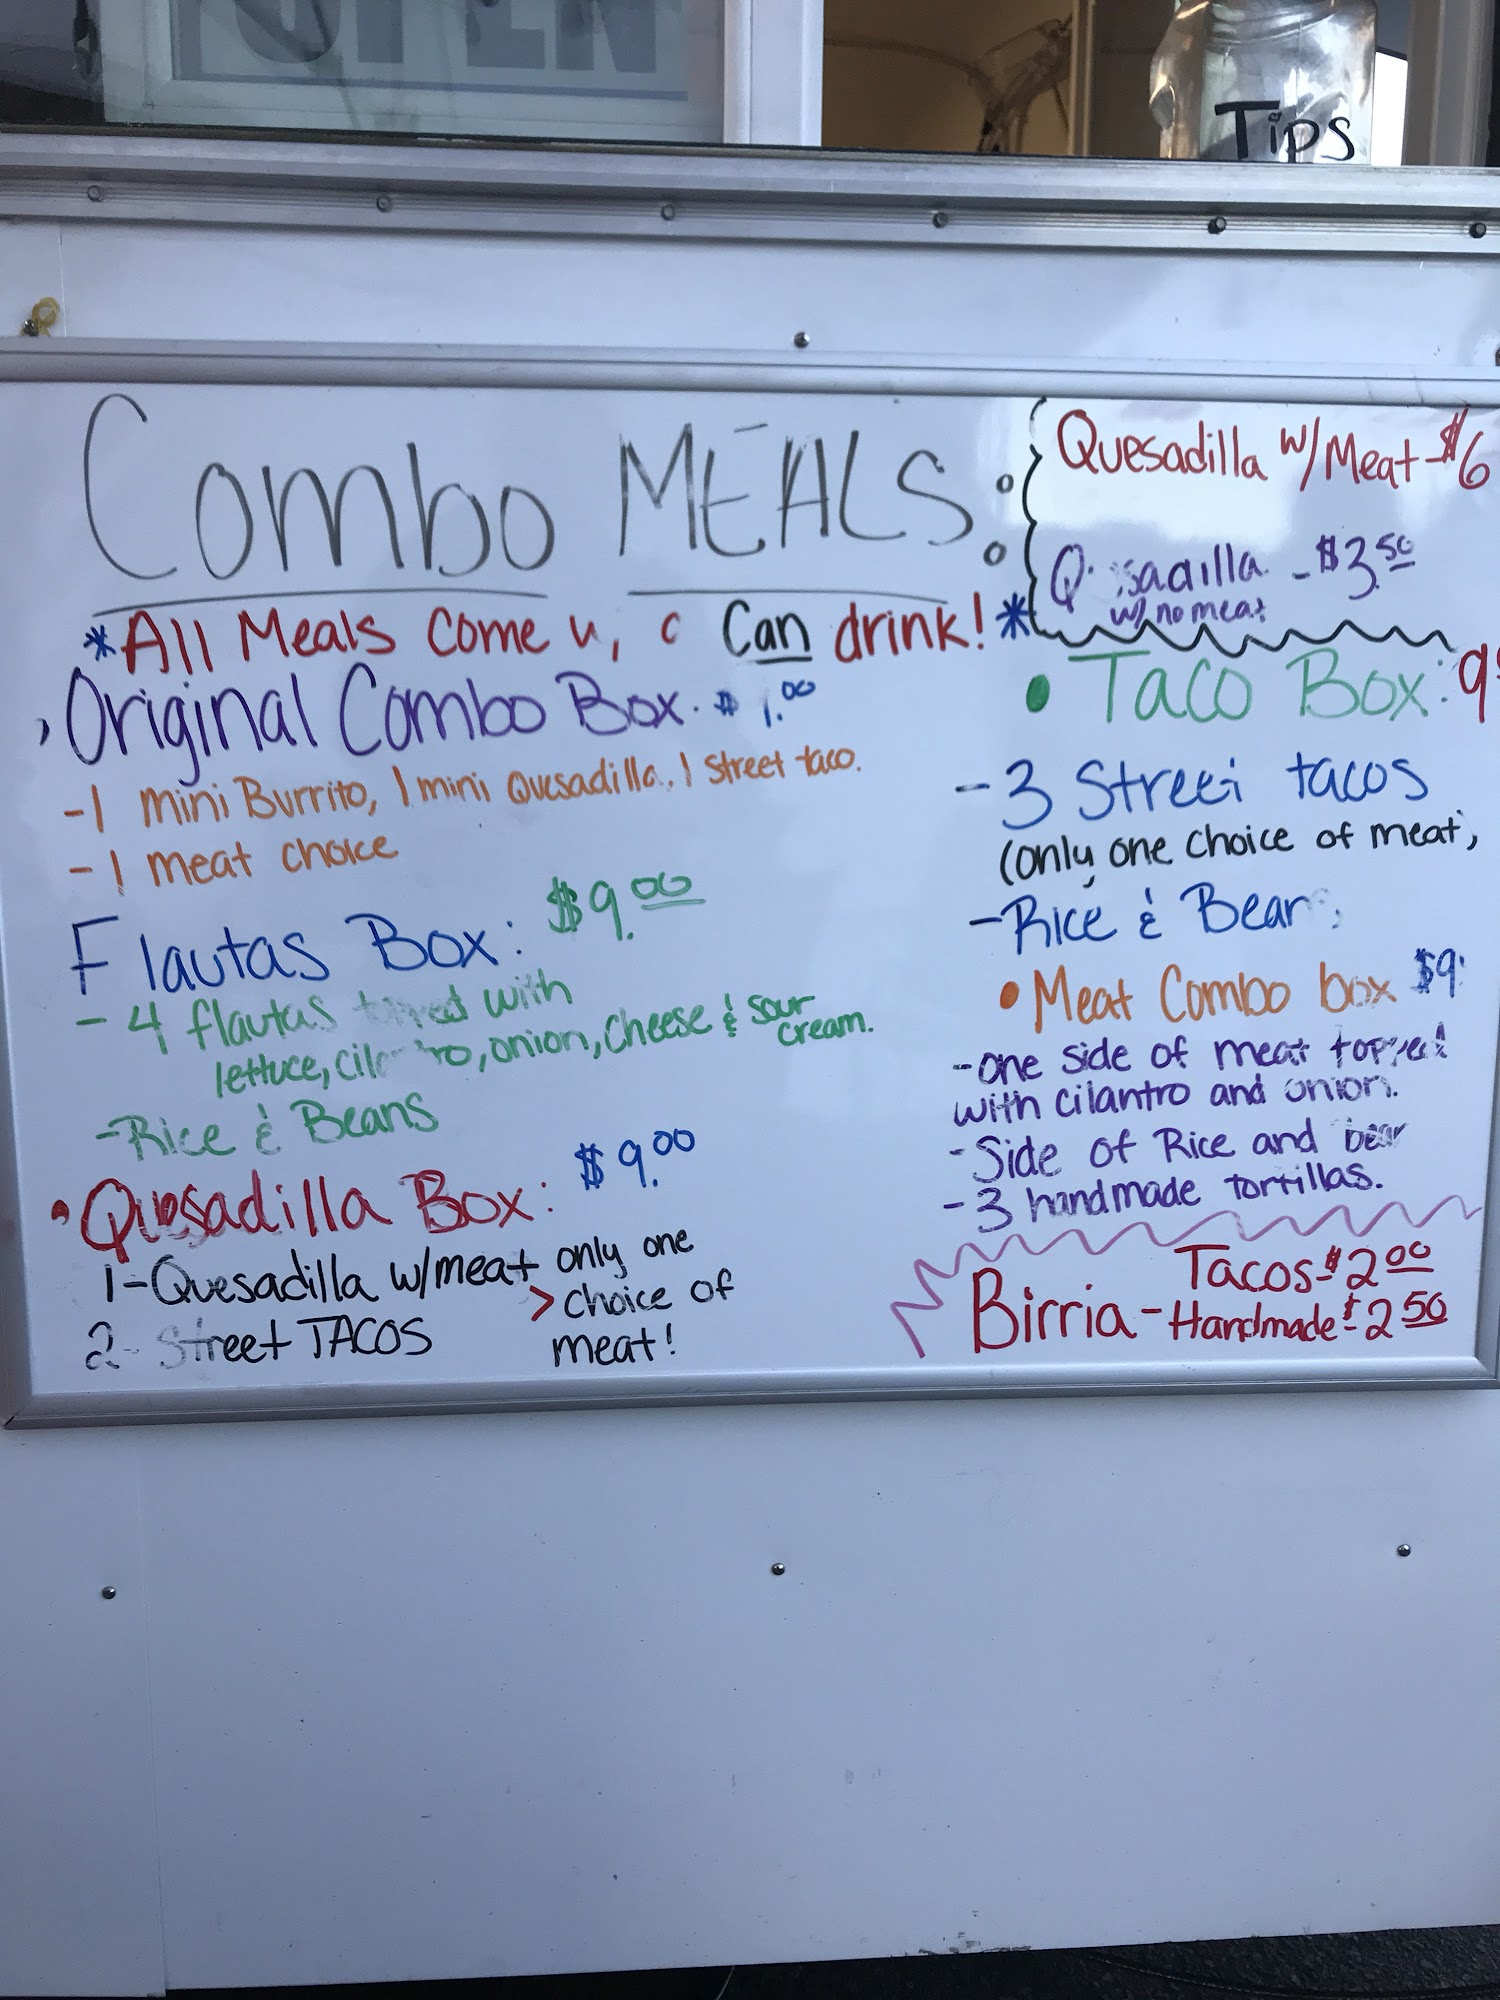 OPEN
Tips
Combo MEALS:
*All Meals Come Can drink!*
Original Combo Box.
-1 mini Burrito, 1 mini Quesadilla, 1 street taco.
-1 meat choice
Flautas Box: $9.00
-4 flautas topped with
lettuce, cilantro, onion, cheese & sour
cream.
-Rice & Beans
•Quesadilla Box: $9.00
1-Quesadilla w/meat only one
2-Street TACOS >choice of
meat!
Quesadilla w/Meat-$6
Quesadilla -$3.50
w/ no meat
•Taco Box: 9
-3 Street tacos
(only one choice of meat)
-Rice & Beans
•Meat Combo box $9
-one side of meat topped
with cilantro and onion.
-Side of Rice and bean
-3 handmade tortillas.
Birria- Tacos-$2.00
Handmade-$2.50